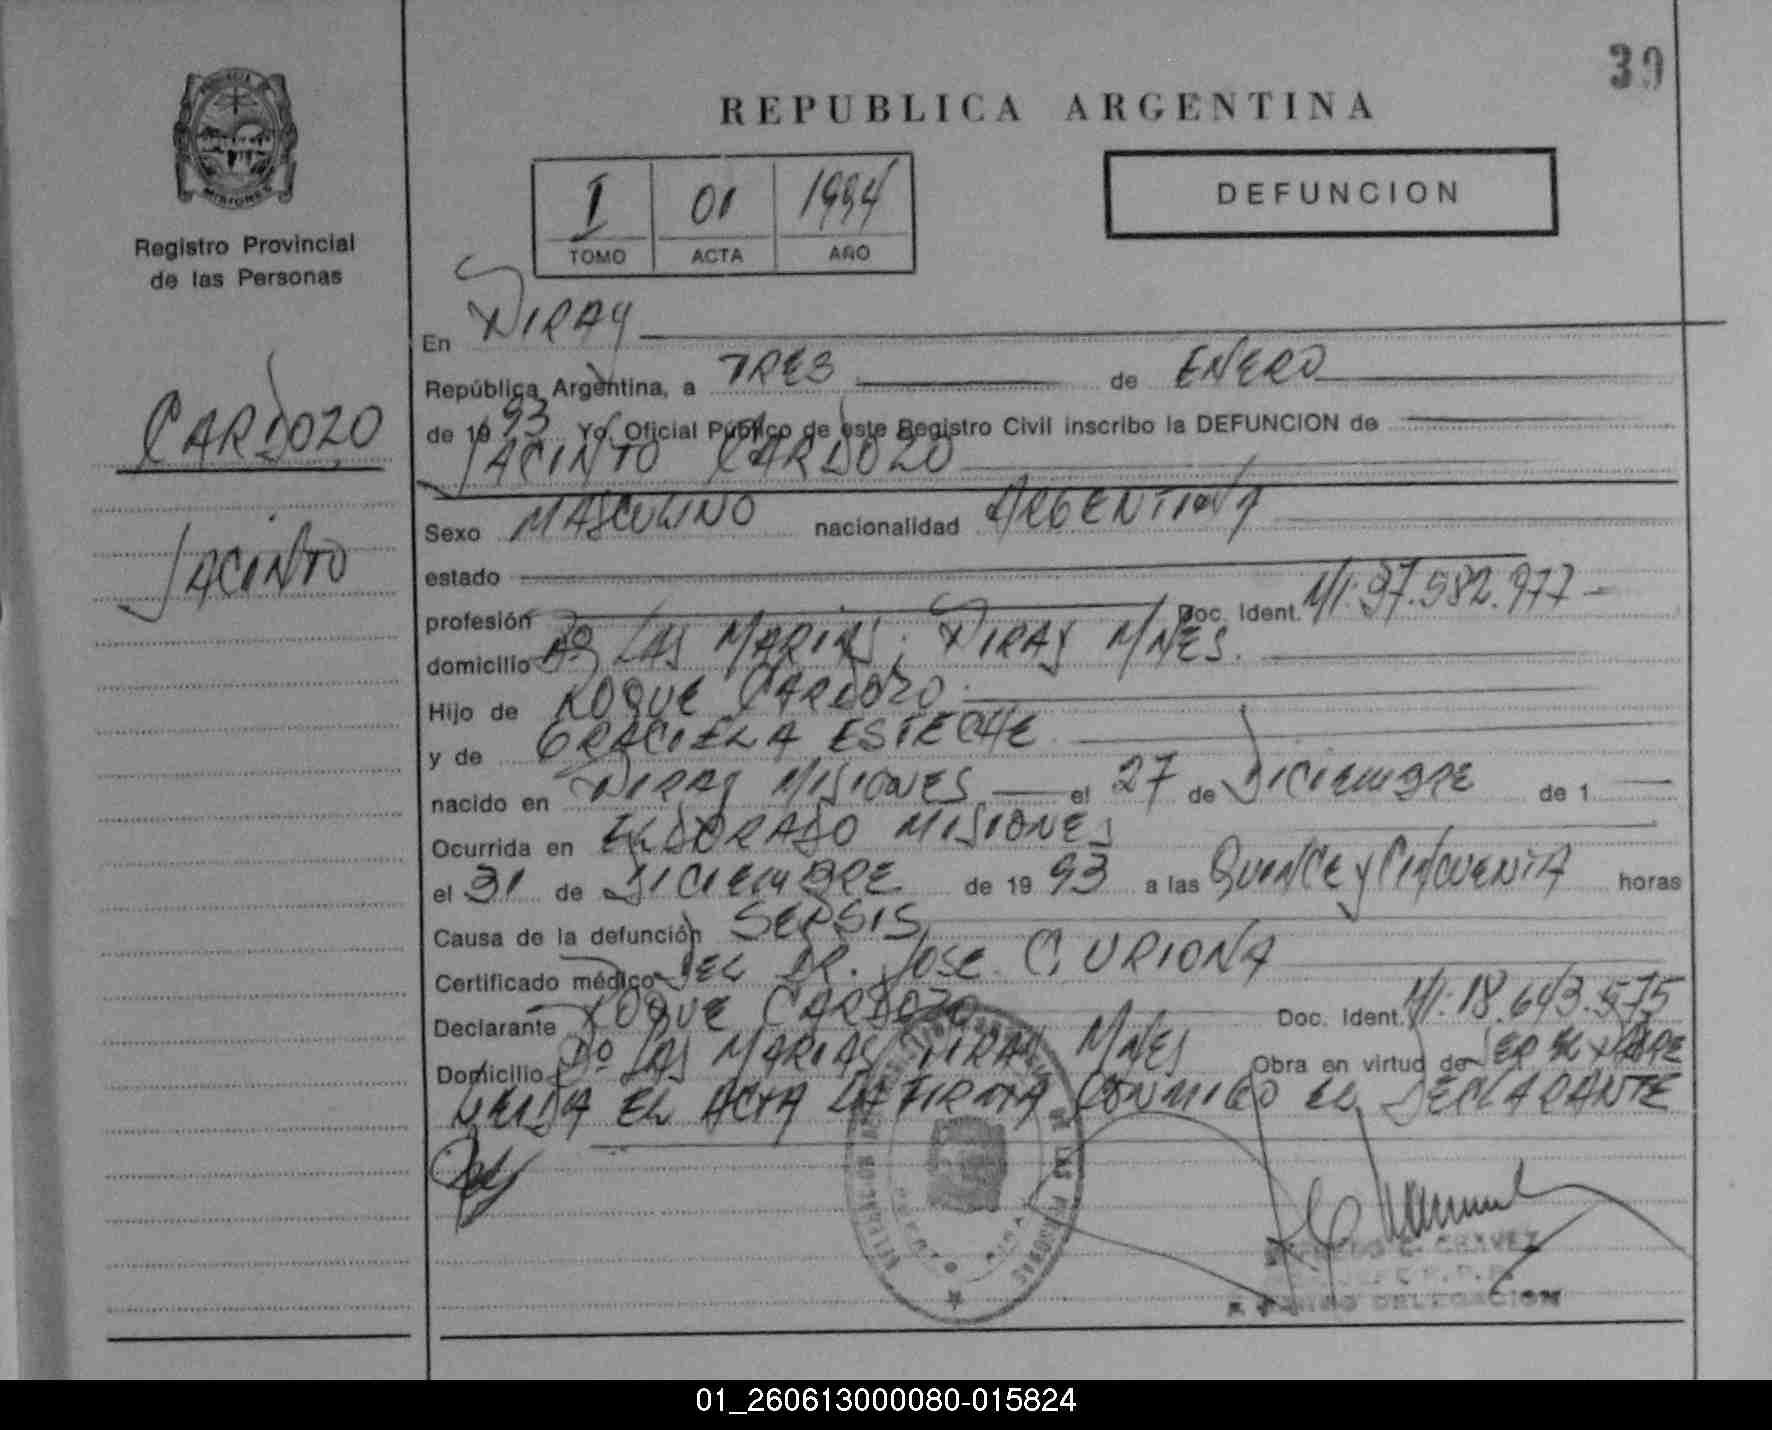 39
REPUBLICA ARGENTINA
I 01 1994
TOMO ACTA AÑO
DEFUNCION
Registro Provincial
de las Personas
CARDOZO
JACINTO
En PIRAY
República Argentina, a TRES de ENERO
de 1993 Yo, Oficial Público de este Registro Civil inscribo la DEFUNCION de
JACINTO CARDOZO
Sexo MASCULINO nacionalidad ARGENTINA
estado
profesión Doc. Ident. MI. 97.582.977
domicilio Bº LAS MARIAS, PIRAY MNES.
Hijo de ROQUE CARDOZO
y de GRACIELA ESTECHE
nacido en PIRAY MISIONES el 27 de DICIEMBRE de 1
Ocurrida en ELDORADO MISIONES
el 31 de DICIEMBRE de 1993 a las QUINCE Y CINCUENTA horas
Causa de la defunción SEPSIS
Certificado médico DEL DR. JOSE C. URIONA
Declarante ROQUE CARDOZO Doc. Ident. MI. 18.643.575
Domicilio Bº LAS MARIAS PIRAY MNES Obra en virtud de SER EL PADRE
LEIDA EL ACTA LA FIRMA CONMIGO EL DECLARANTE
CHAVEZ
DELEGACION
01_260613000080-015824